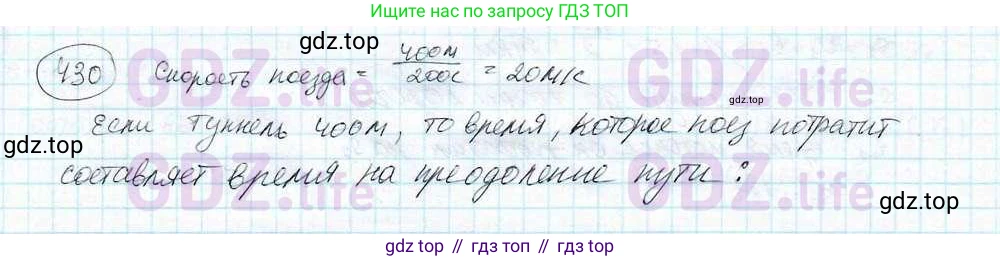 Ищите нас по запросу ГДЗ ТОП
gdz.top
430 Скорость поезда = 400м / 200с = 20м/с
GDZ.life
gdz.top
Если туннель 400м, то время, которое поез потратит
gdz.top
составляет время на преодоление пути:
GDZ.life
gdz.top
gdz top // гдз топ // gdz top